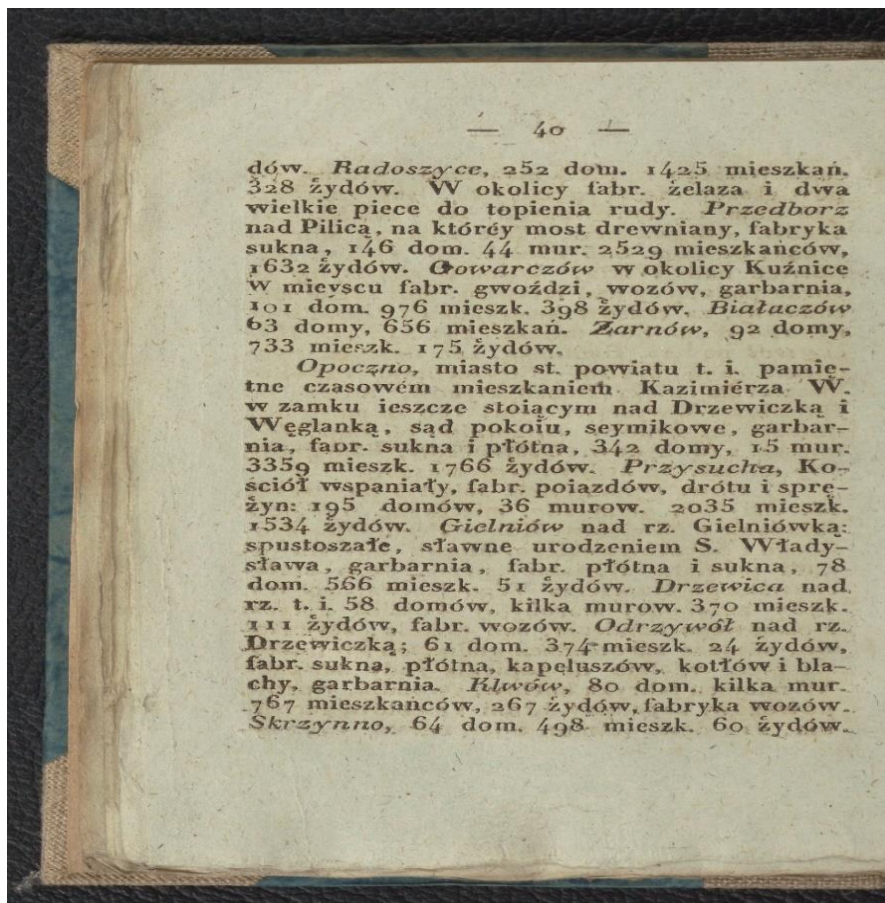 — 40 —
dów. Radoszyce, 252 dom. 1425 mieszkań.
328 żydów. W okolicy fabr. żelaza i dwa
wielkie piece do topienia rudy. Przedborz
nad Pilicą, na któréy most drewniany, fabryka
sukna, 146 dom. 44 mur. 2529 mieszkańców,
1632 żydów. Gowarczów w okolicy Kuźnice
w mieyscu fabr. gwoździ, wozów, garbarnia,
101 dom. 976 mieszk. 398 żydów. Białaczów
63 domy, 656 mieszkań. Żarnów, 92 domy,
733 mieszk. 175 żydów.
Opoczno, miasto st. powiatu t. i. pamię-
tne czasowém mieszkaniem Kazimiérza W.
w zamku ieszcze stoiącym nad Drzewiczką i
Węglanką, sąd pokoiu, seymikowe, garbar-
nia, fabr. sukna i płótna, 342 domy, 15 mur.
3359 mieszk. 1766 żydów. Przysucha, Ko-
ściół wspaniały, fabr. poiazdów, drótu i sprę-
żyn: 195 domów, 36 murow. 2035 mieszk.
1534 żydów. Gielniów nad rz. Gielniówką:
spustoszałe, sławne urodzeniem S. Włady-
sława, garbarnia, fabr. płótna i sukna, 78
dom. 566 mieszk. 51 żydów. Drzewica nad
rz. t. i. 58 domów, kilka murow. 370 mieszk.
111 żydów, fabr. wozów. Odrzywół nad rz.
Drzewiczką; 61 dom. 374 mieszk. 24 żydów,
fabr. sukna, płótna, kapeluszów, kotłów i bla-
chy, garbarnia. Klwów, 80 dom. kilka mur.
767 mieszkańców, 267 żydów, fabryka wozów.
Skrzynno, 64 dom. 498 mieszk. 60 żydów.